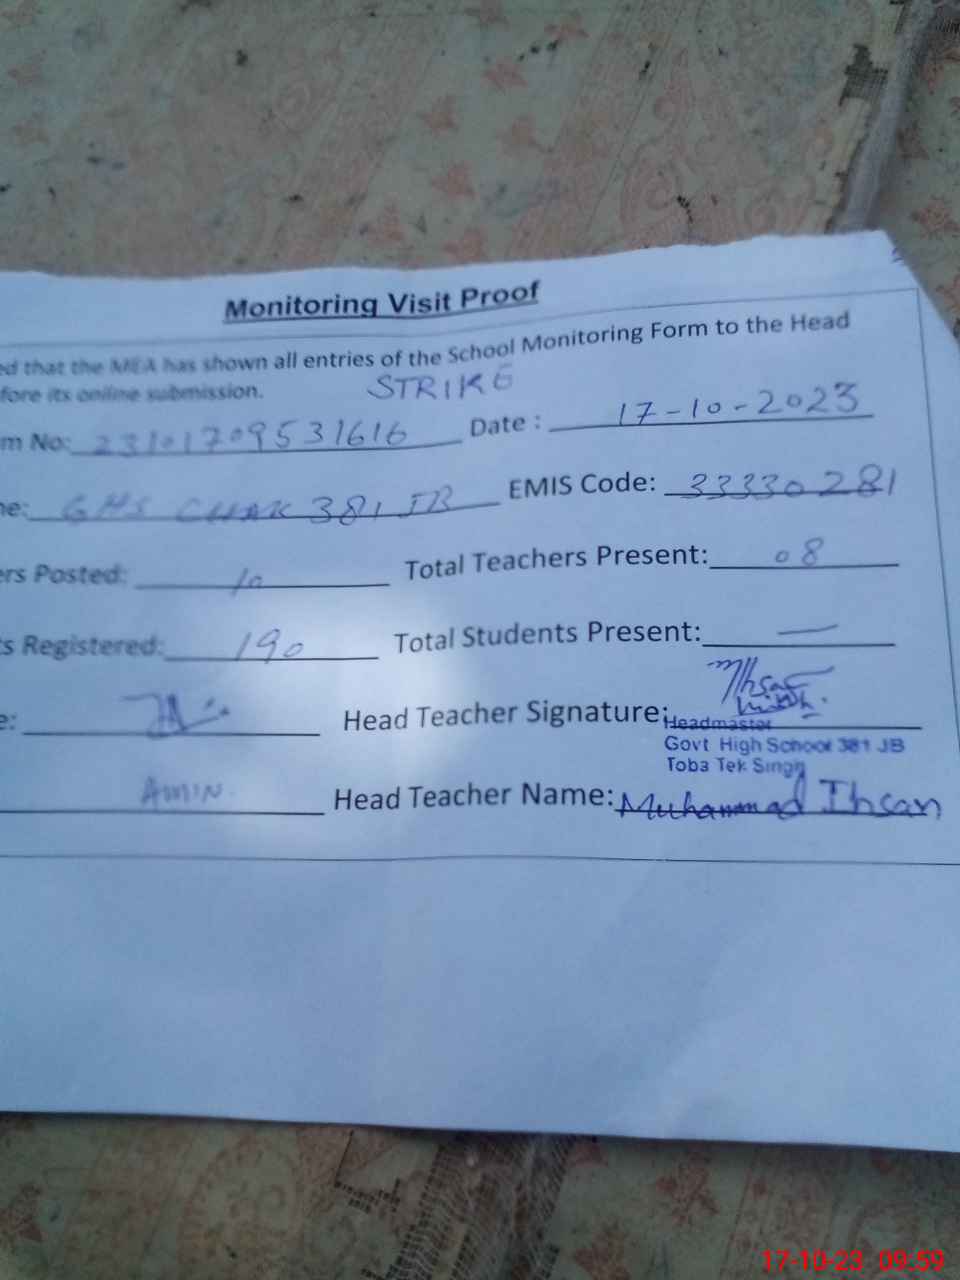 Monitoring Visit Proof
ed that the MEA has shown all entries of the School Monitoring Form to the Head
fore its online submission. STRIKE
m No: 23101709531616 Date : 17-10-2023
ne: GHS CHAK 381 JB EMIS Code: 33330281
ers Posted: 10 Total Teachers Present: 08
ts Registered: 190 Total Students Present: —
e: Head Teacher Signature:
Headmaster
Govt High School 381 JB
Toba Tek Singh
AMIN Head Teacher Name: Muhammad Ihsan
17-10-23 09:59